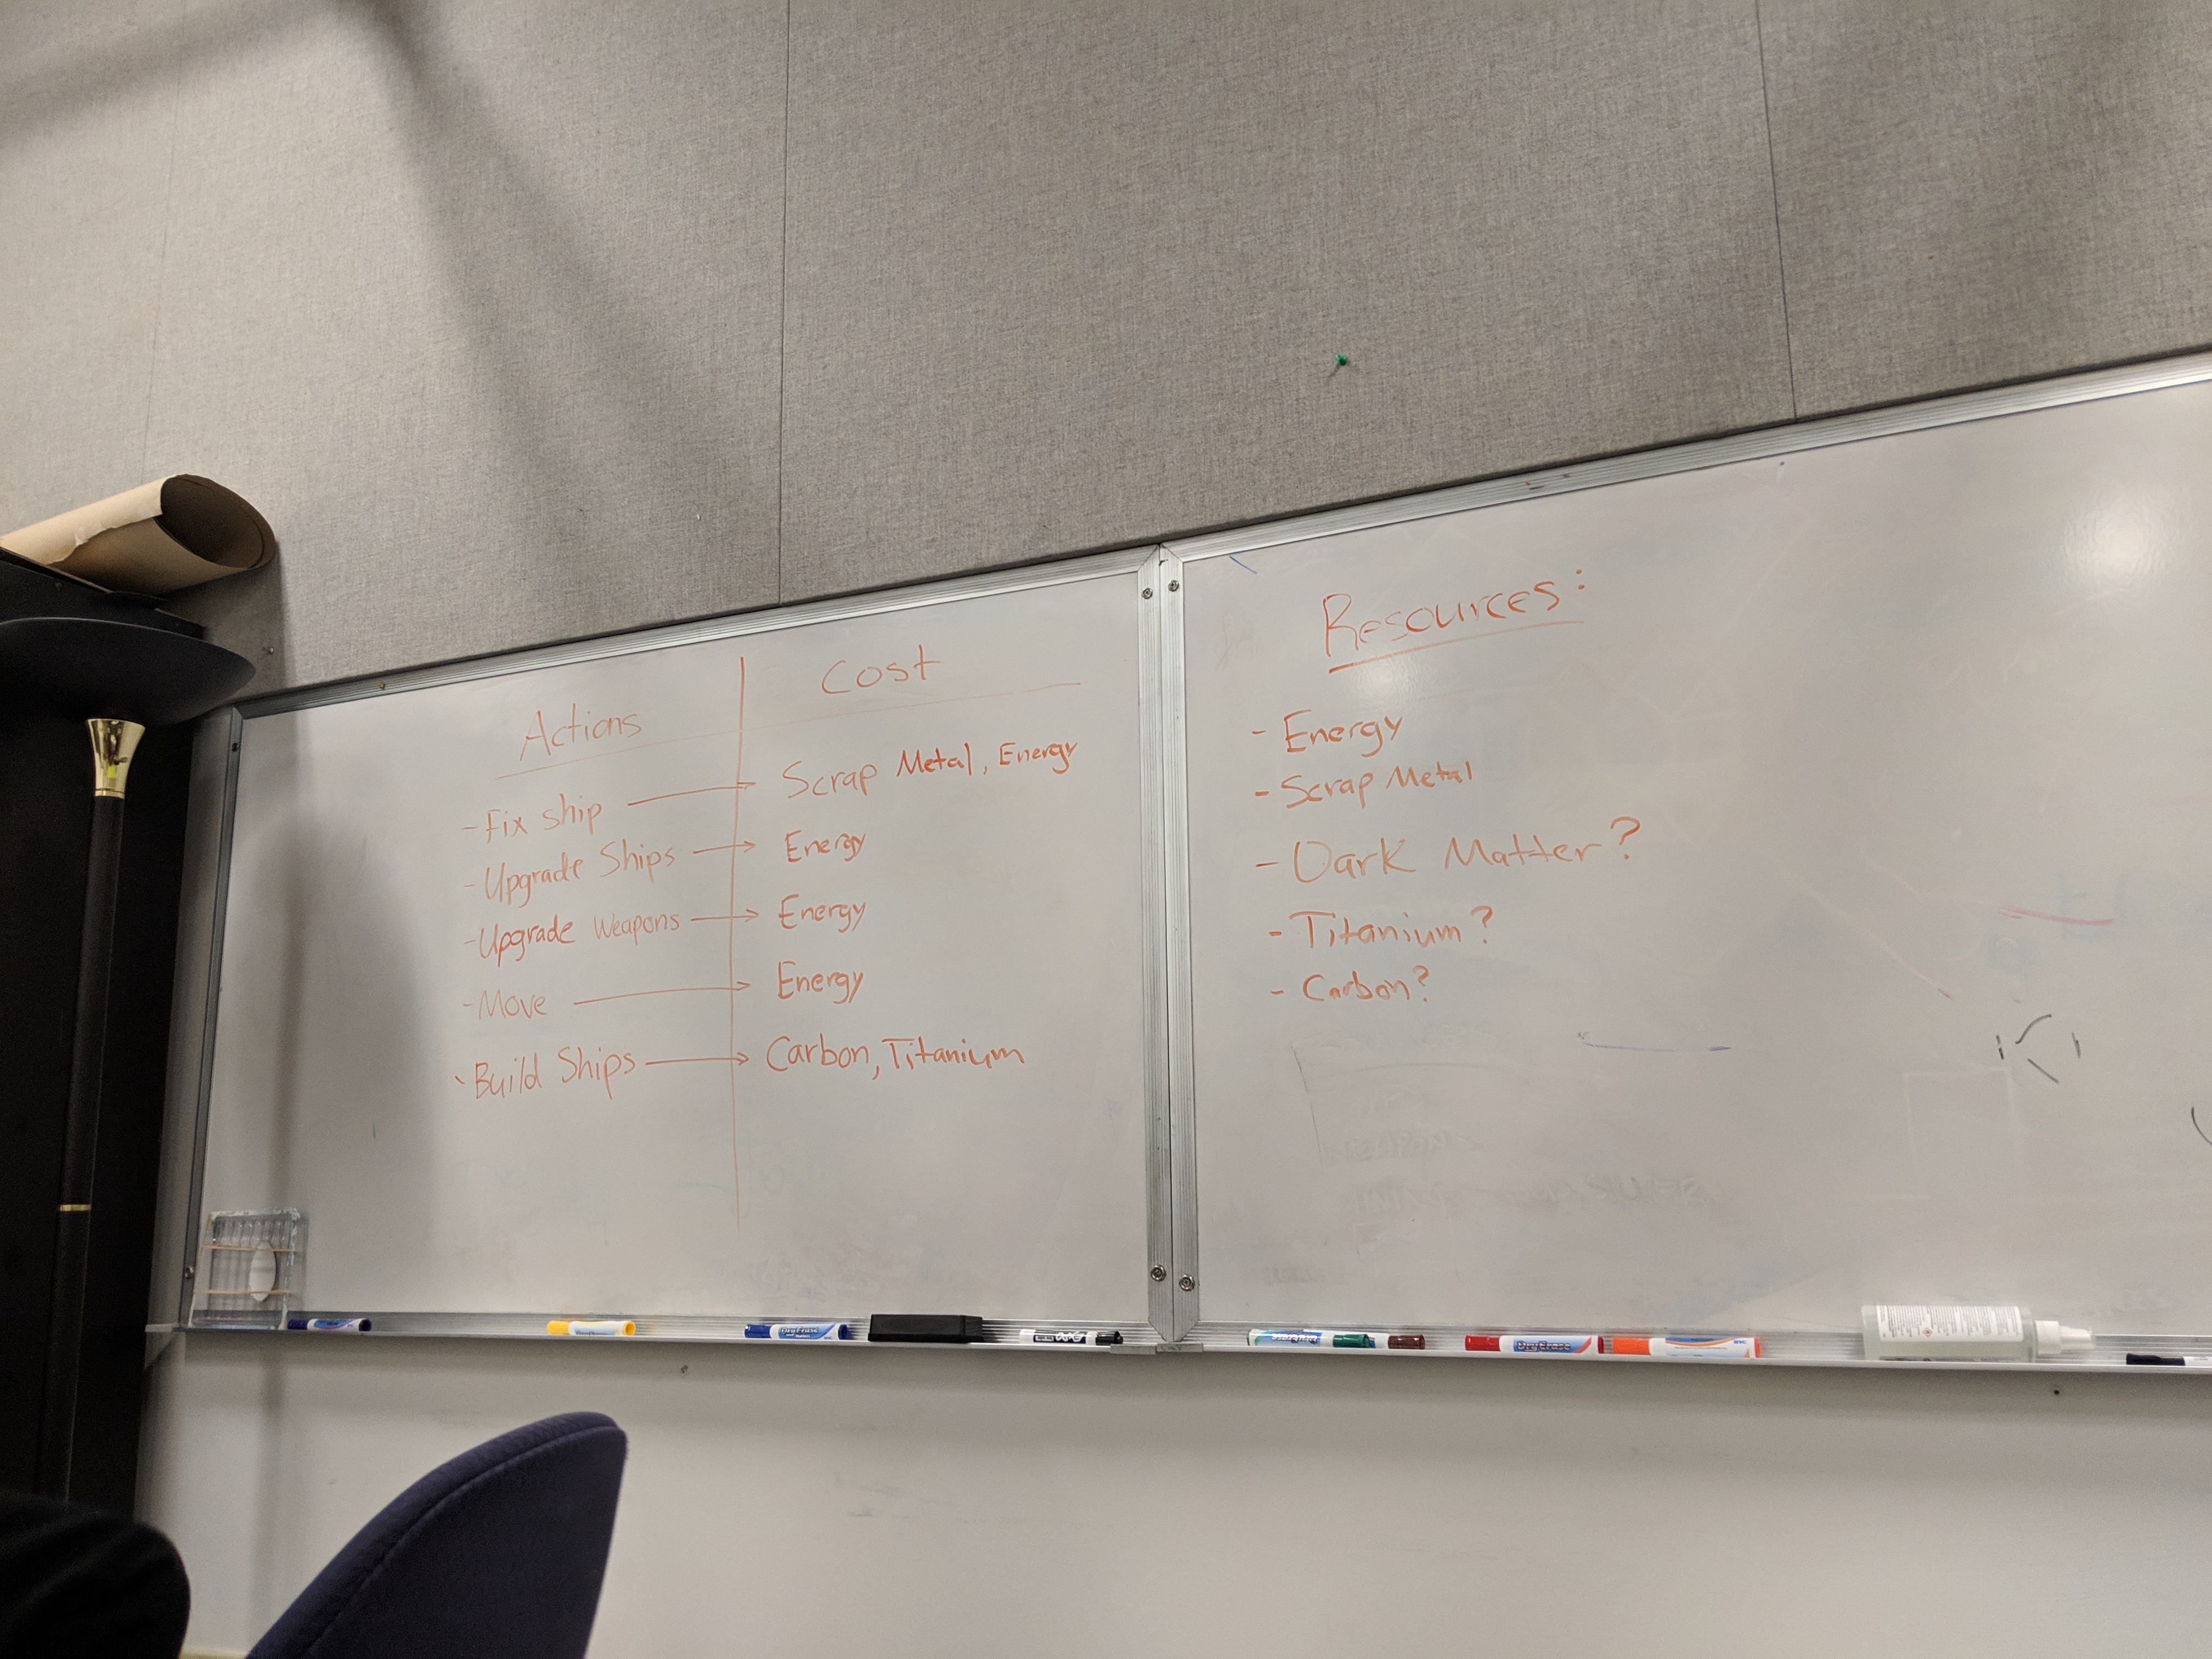 Actions | Cost
- Fix ship → Scrap Metal, Energy
- Upgrade Ships → Energy
- Upgrade Weapons → Energy
- Move → Energy
- Build Ships → Carbon, Titanium
Resources:
- Energy
- Scrap Metal
- Dark Matter?
- Titanium?
- Carbon?
Dry Erase
Dry Erase